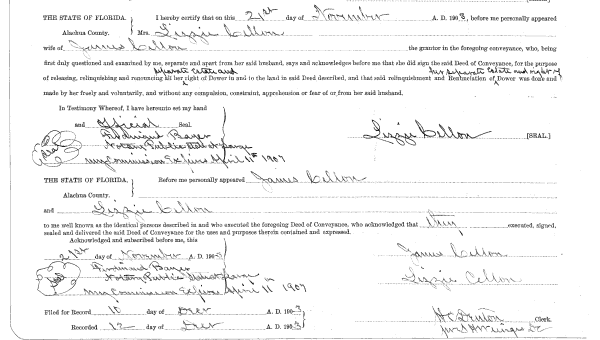 THE STATE OF FLORIDA. I hereby certify that on this 21st day of November A. D. 1903, before me personally appeared
Alachua County. Mrs. Lizzie Cellon
wife of James Cellon the grantor in the foregoing conveyance, who, being
first duly questioned and examined by me, separate and apart from her said husband, says and acknowledges before me that she did sign the said Deed of Conveyance, for the purpose
separate Estate and her separate Estate and right of
of releasing, relinquishing and renouncing all her right of Dower in and to the land in said Deed described, and that said relinquishment and Renunciation of Dower was done and
made by her freely and voluntarily, and without any compulsion, constraint, apprehension or fear of or from her said husband.
In Testimony Whereof, I have hereunto set my hand
and official Seal.
Lizzie Cellon [SEAL.]
Notary Public State at Large
My Commission Expires April 11th 1907
THE STATE OF FLORIDA. Before me personally appeared James Cellon
Alachua County.
and Lizzie Cellon
to me well known as the identical persons described in and who executed the foregoing Deed of Conveyance, who acknowledged that they executed, signed,
sealed and delivered the said Deed of Conveyance for the uses and purposes therein contained and expressed.
Acknowledged and subscribed before me, this
21st day of November A. D. 190 James Cellon
Notary Public State at Large Lizzie Cellon
My Commission Expires April 11 1907
Filed for Record 10 day of Decr A. D. 1903
Clerk.
Recorded 12 day of Decr A. D. 1903